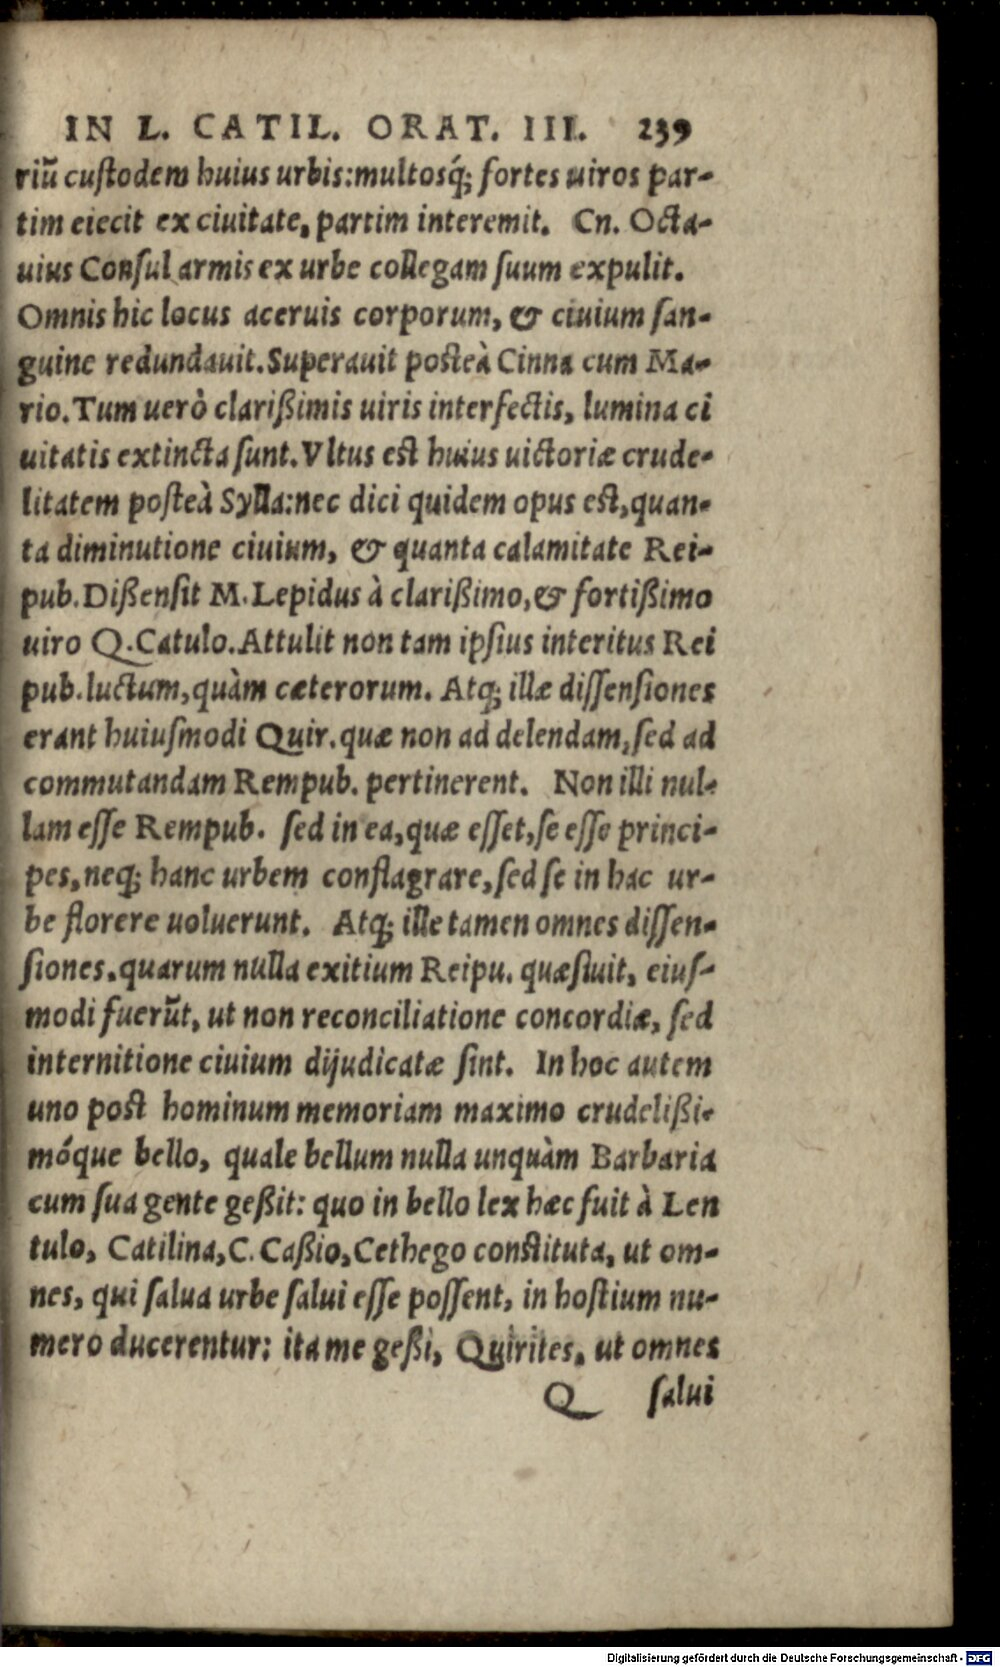 IN L. CATIL. ORAT. III. 239
riũ custodem huius urbis:multosq́; fortes uiros par-
tim eiecit ex ciuitate, partim interemit. Cn. Octa-
uius Consul armis ex urbe collegam suum expulit.
Omnis hic locus aceruis corporum, & ciuium san-
guine redundauit. Superauit posteà Cinna cum Ma-
rio. Tum uerò clarißimis uiris interfectis, lumina ci
uitatis extincta sunt. Vltus est huius uictoriæ crude-
litatem posteà Sylla:nec dici quidem opus est, quan-
ta diminutione ciuium, & quanta calamitate Rei-
pub. Dißensit M. Lepidus à clarißimo, & fortißimo
uiro Q. Catulo. Attulit non tam ipsius interitus Rei
pub. luctum, quàm cæterorum. Atq; illæ dissensiones
erant huiusmodi Quir. quæ non ad delendam, sed ad
commutandam Rempub. pertinerent. Non illi nul-
lam esse Rempub. sed in ea, quæ esset, se esse princi-
pes, neq; hanc urbem conflagrare, sed se in hac ur-
be florere uoluerunt. Atq; ille tamen omnes dissen-
siones. quarum nulla exitium Reipu. quæsiuit, eius-
modi fuerũt, ut non reconciliatione concordiæ, sed
internitione ciuium dijudicatæ sint. In hoc autem
uno post hominum memoriam maximo crudelißi-
móque bello, quale bellum nulla unquàm Barbaria
cum sua gente geßit: quo in bello lex hæc fuit à Len
tulo, Catilina, C. Caßio, Cethego constituta, ut om-
nes, qui salua urbe salui esse possent, in hostium nu-
mero ducerentur: ita me geßi, Quirites, ut omnes
Q salui
Digitalisierung gefördert durch die Deutsche Forschungsgemeinschaft - DFG